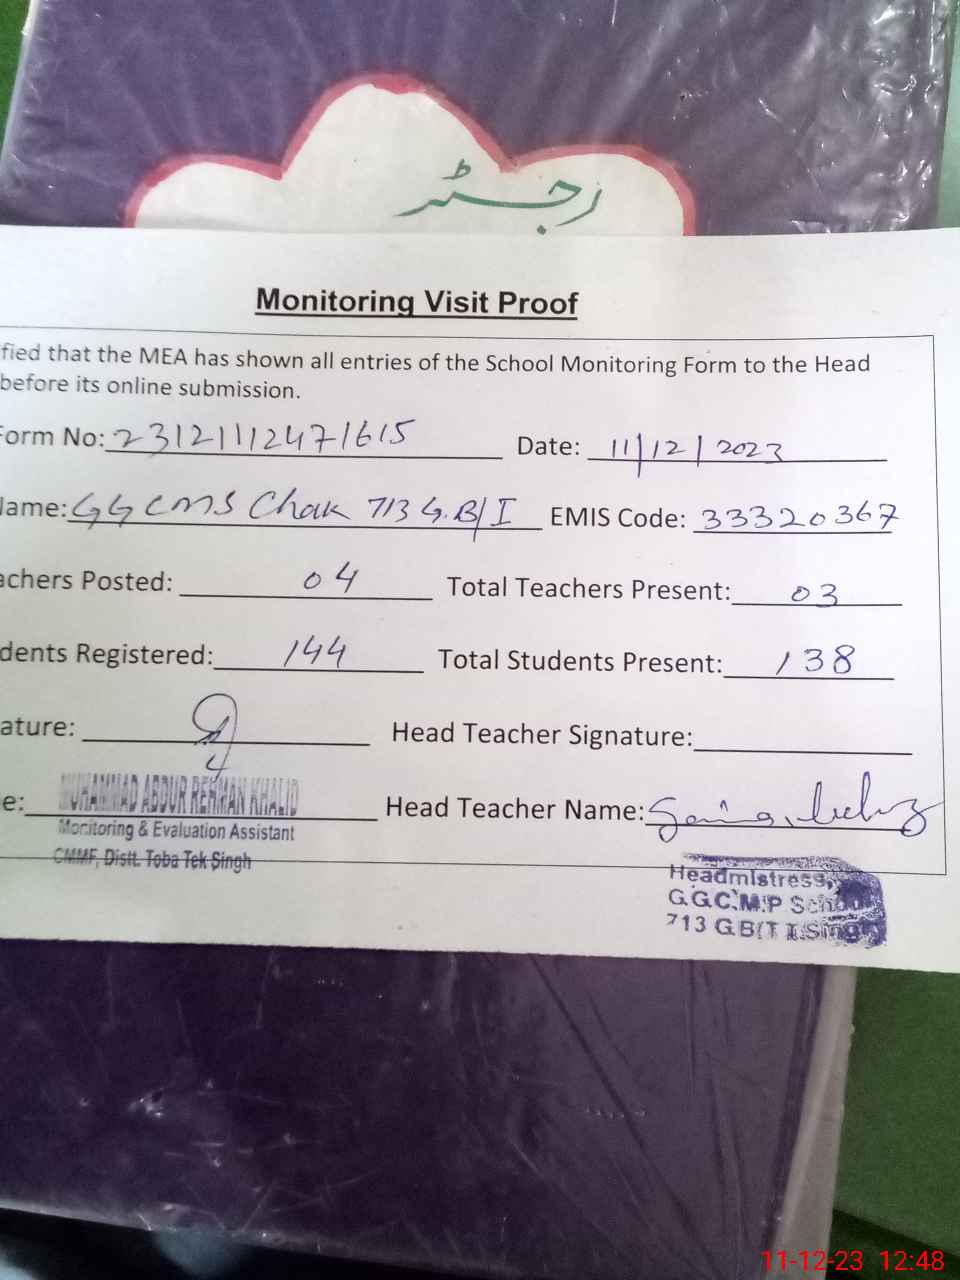 رجسٹر
Monitoring Visit Proof
fied that the MEA has shown all entries of the School Monitoring Form to the Head
before its online submission.
Form No: 23121112471615 Date: 11/12/2023
Name: GGCMS Chak 713 G.B/I EMIS Code: 33320367
achers Posted: 04 Total Teachers Present: 03
dents Registered: 144 Total Students Present: 138
ature: Head Teacher Signature:
e: MUHAMMAD ABDUR REHMAN KHALID Head Teacher Name:
Monitoring & Evaluation Assistant
CMMF, Distt. Toba Tek Singh
Headmistress,
G.G.C.M.P School
713 GB(T.T.Singh
11-12-23 12:48